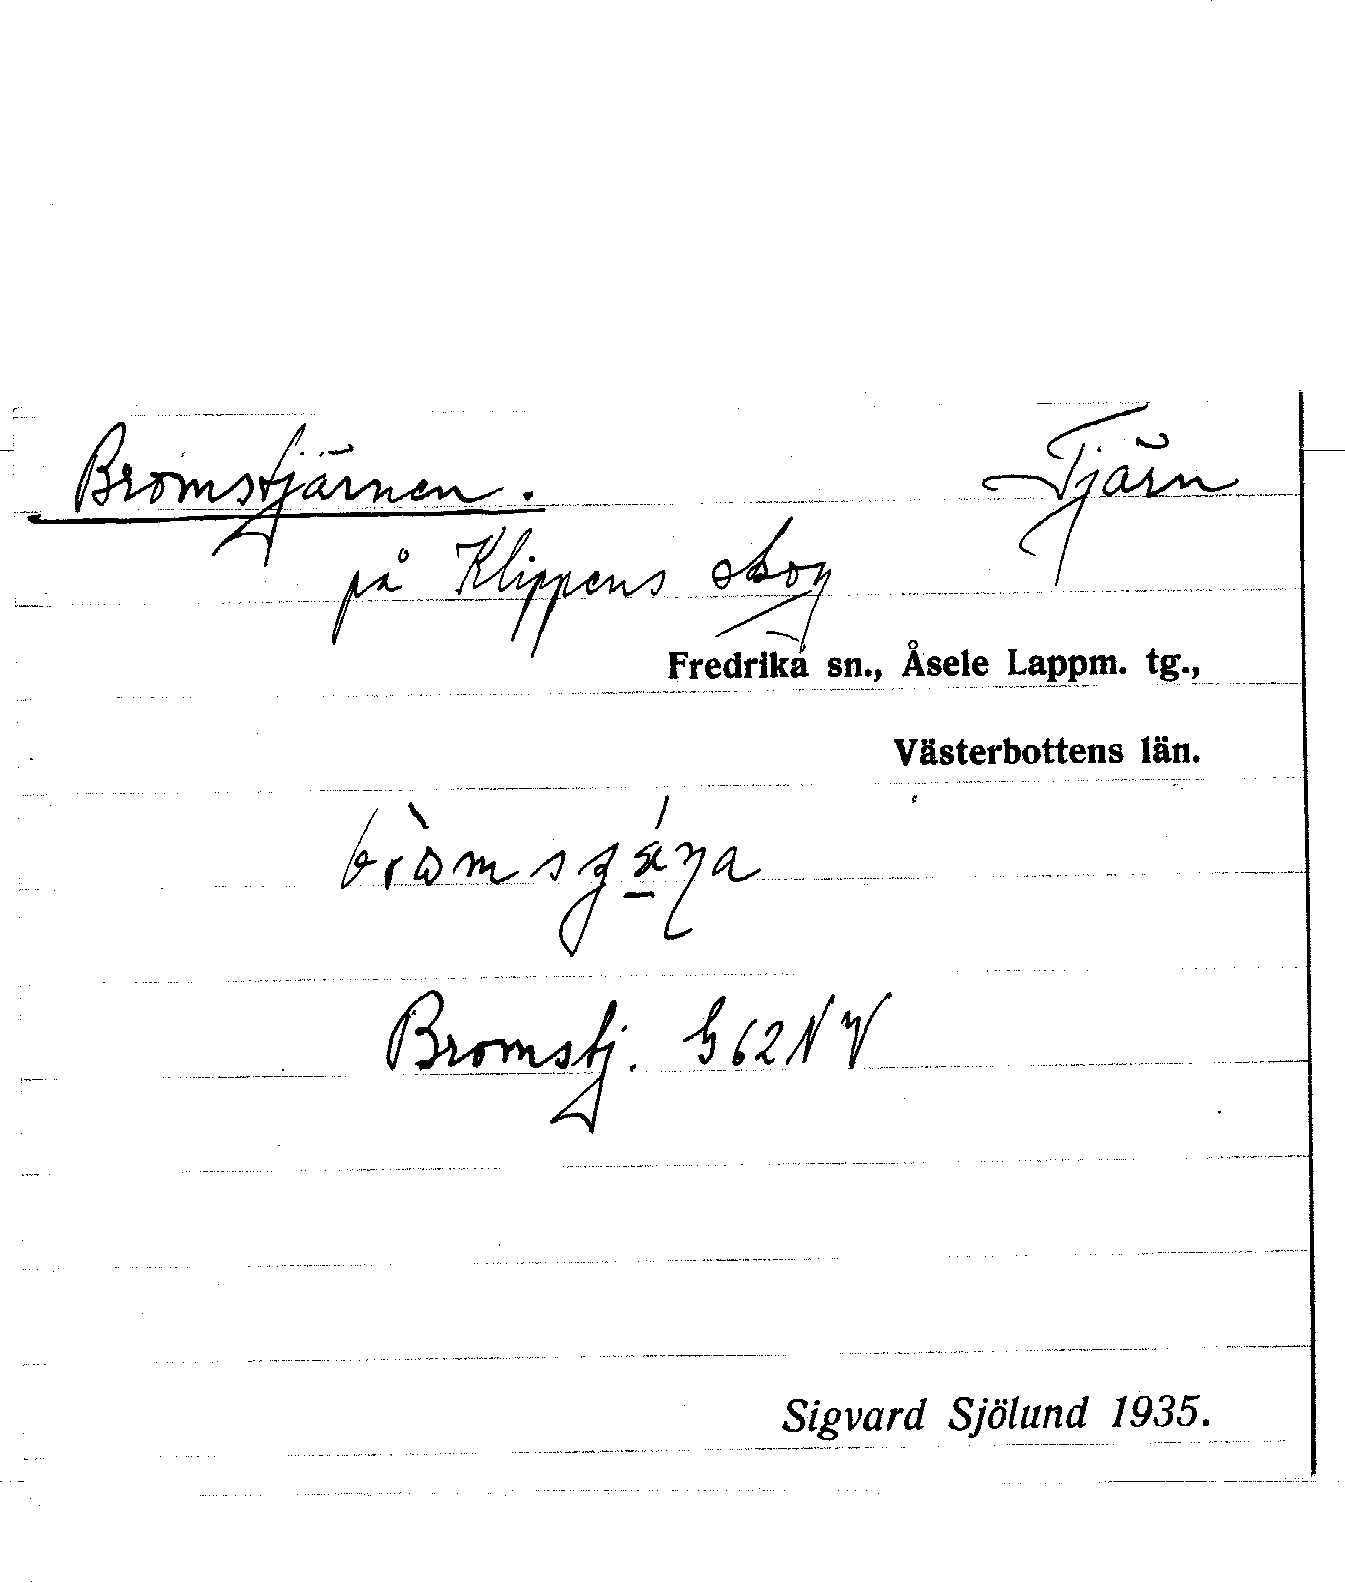 Bromstjärnen. Tjärn
på Klippens skog
Fredrika sn., Åsele Lappm. tg.,
Västerbottens län.
Bromstj. G62NV
Sigvard Sjölund 1935.